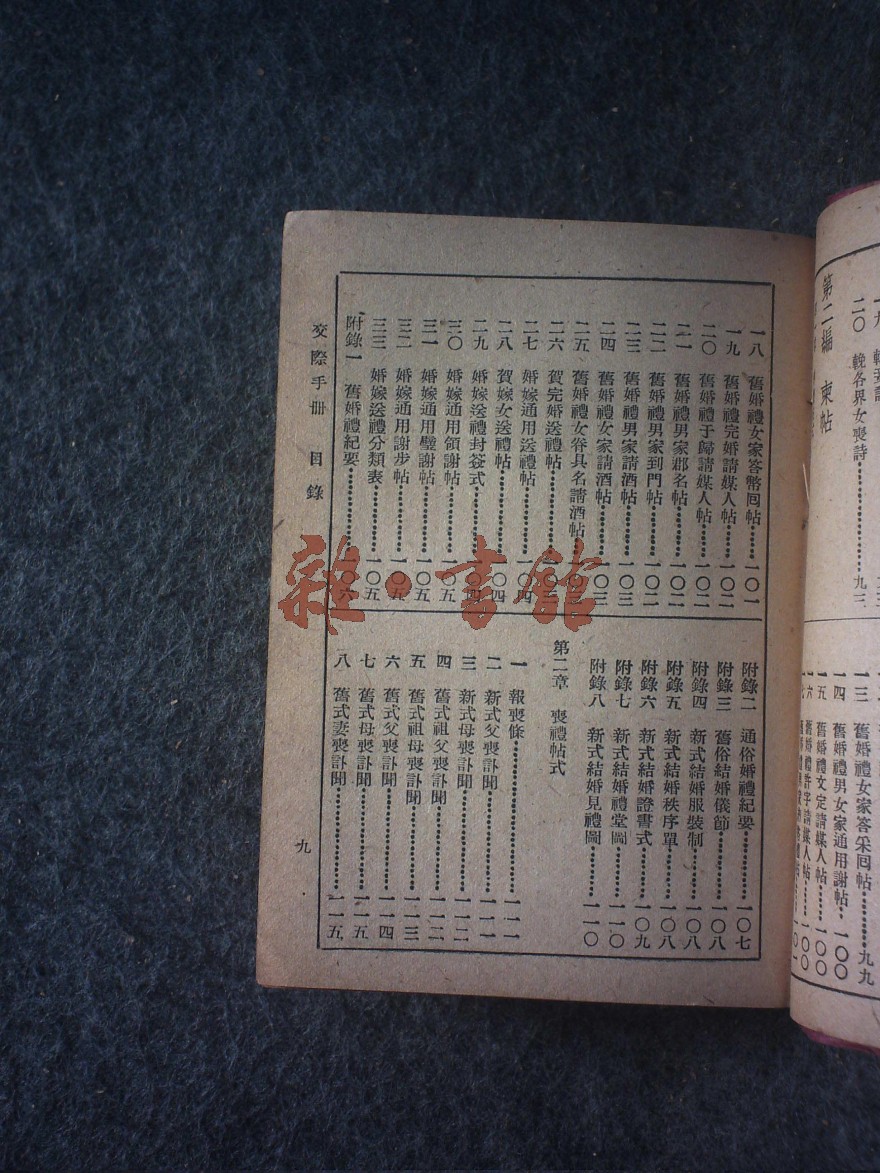 二〇 輓各界女喪詩……九三
第二編 柬帖
一三 舊婚禮女家答采囘帖……九九
一四 舊婚禮男女家通用謝帖…一〇〇
一五 舊婚禮文定請媒人帖…一〇〇
一六 舊婚禮許字請媒人帖…一〇〇
一八 舊婚禮女家答幣囘帖……一〇一
一九 舊婚禮完婚請媒人帖……一〇二
二〇 舊婚禮于歸請媒人帖……一〇二
二一 舊婚禮男家郡名帖……一〇二
二二 舊婚禮男家到門帖……一〇二
二三 舊婚禮男家請酒帖……一〇三
二四 舊婚禮女家請酒帖……一〇三
二五 舊婚禮女谷具名請酒帖……一〇三
二六 賀完婚送禮帖……一〇三
二七 婚嫁通用送禮帖……一〇四
二八 賀嫁女送禮帖……一〇四
二九 婚嫁送禮封簽式……一〇四
三〇 婚嫁通用領謝帖……一〇五
三一 婚嫁通用璧謝帖……一〇五
三二 婚嫁通用謝步帖……一〇五
三三 婚嫁送禮分類表……一〇五
附錄一 舊婚禮紀要……一〇六
附錄二 通俗婚禮紀要……一〇七
附錄三 舊俗結婚儀節……一〇八
附錄四 新式結婚服裝制……一〇八
附錄五 新式結婚秩序單……一〇八
附錄六 新式結婚證書式……一〇九
附錄七 新式結婚禮堂圖……一一〇
附錄八 新式結婚見禮圖……一一〇
第二章 喪禮帖式
一 報喪條……一一一
二 新式父喪訃聞……一一一
三 新式母喪訃聞……一一二
四 舊式祖父喪訃聞……一一二
五 舊式祖母喪訃聞……一一三
六 舊式父喪訃聞……一一四
七 舊式母喪訃聞……一一五
八 舊式妻喪訃聞……一一五
交際手冊 目錄
九
雜·書館